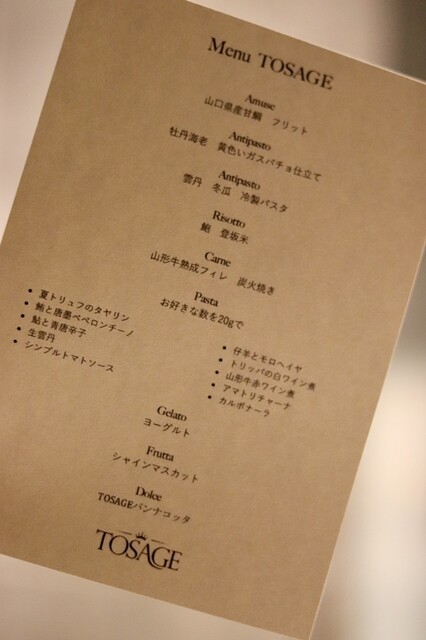 Menu TOSAGE
Amuse
山口県産甘鯛 フリット
Antipasto
牡丹海老 黄色いガスパチョ仕立て
Antipasto
雲丹 冬瓜 冷製パスタ
Risotto
鮑 登坂米
Carne
山形牛熟成フィレ 炭火焼き
Pasta
お好きな数を20gで
• 夏トリュフのタヤリン
• 鮪と唐墨ペペロンチーノ
• 鮎と青唐辛子
• 生雲丹
• シンプルトマトソース
• 仔羊とモロヘイヤ
• トリッパの白ワイン煮
• 山形牛赤ワイン煮
• アマトリチャーナ
• カルボナーラ
Gelato
ヨーグルト
Frutta
シャインマスカット
Dolce
TOSAGEパンナコッタ
TOSAGE